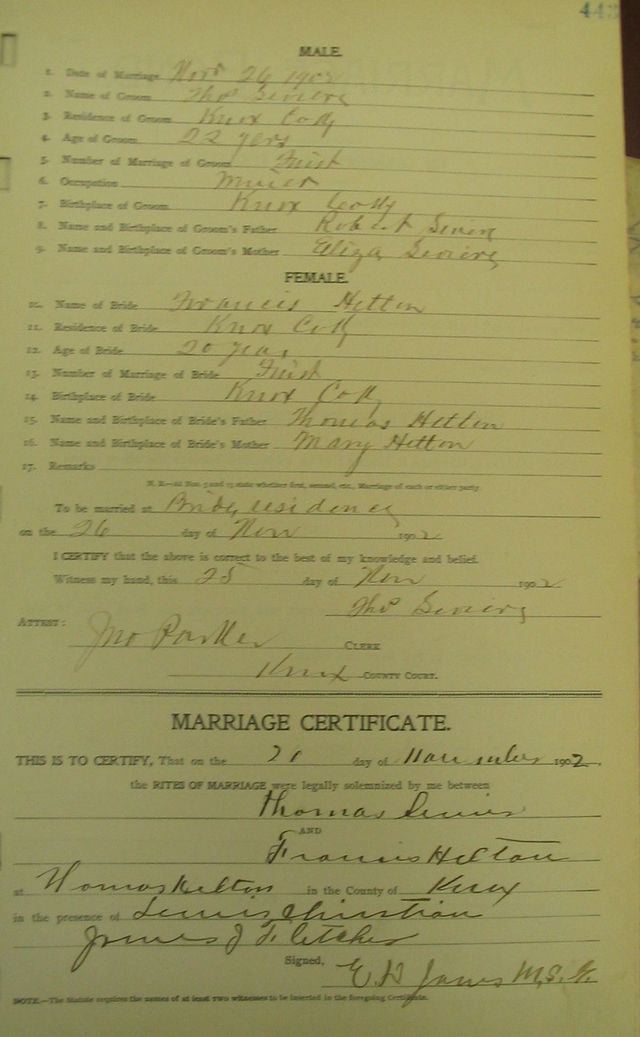 443
MALE.
1. Date of Marriage Nov 26 1902
2. Name of Groom Thos Seviers
3. Residence of Groom Knox Coty
4. Age of Groom 22 yers
5. Number of Marriage of Groom First
6. Occupation Minier
7. Birthplace of Groom Knox Coty
8. Name and Birthplace of Groom's Father Robert
9. Name and Birthplace of Groom's Mother Eliza Seviers
FEMALE.
10. Name of Bride Francis Helton
11. Residence of Bride Knox Coty
12. Age of Bride 20 years
13. Number of Marriage of Bride First
14. Birthplace of Bride Knox Coty
15. Name and Birthplace of Bride's Father Thomas Helton
16. Name and Birthplace of Bride's Mother Mary Helton
17. Remarks
N. B.—At Nos. 5 and 13 state whether first, second, etc., Marriage of each or either party.
To be married at Bride residency
on the 26 day of Nov 1902
I CERTIFY that the above is correct to the best of my knowledge and belief.
Witness my hand, this 25 day of Nov 1902
Thos Seviers
ATTEST:
Jno Parker CLERK
Knox COUNTY COURT.
MARRIAGE CERTIFICATE.
THIS IS TO CERTIFY, That on the day of November 1902.
the RITES OF MARRIAGE were legally solemnized by me between
Thomas
AND
Francis Helton
at Thomas Helton in the County of Knox
in the presence of Lewis Christian
James J Fletcher
Signed, E D Jones M.S.G.
NOTE.—The Statute requires the names of at least two witnesses to be inserted in the foregoing Certificate.